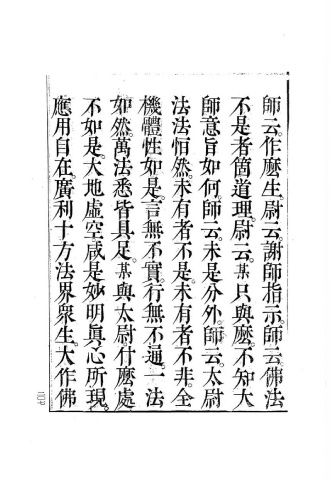 師云。作麼生。尉云。謝師指示。師云。佛法
不是者箇道理。尉云。某只與麼。不知大
師意旨如何。師云。未是分外。師云。太尉
法法恒然。未有者不是。未有者不非。全
機體性如是。言無不實。行無不通。一法
如然。萬法悉皆具足。某與太尉什麼處
不如是。大地虛空。咸是妙明眞心所現。
應用自在。廣利十方法界衆生。大作佛
二〇七